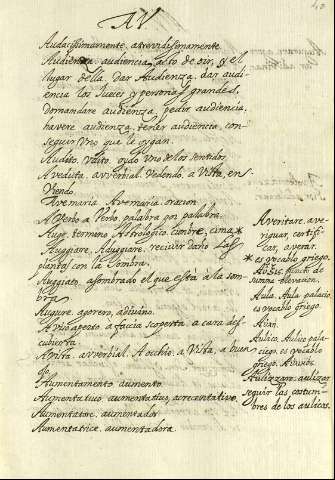 40
AV
Audacissimamente, atreuidissimamente
Audienza, audiencia, acto de oir, y el
lugar della. Dar Audienza, dar audi-
encia los Jueces y personas grandes,
Domandare audienza, pedir audiencia,
havere audienza, tener audiencia, con-
seguir uno que le oygan.
Audito, oydo uno de los sentidos
A veduta, avverbial. Vedendo, a vista, en
Viendo.
Avemaria Avemaria oracion
A Verbo a Verbo, palabra por palabra
Auge, termino Astrologico, cumbre, cima *
Auggiare, Aduggiare, recivir daño las
plantas con la sombra.
Auggiato, asombrado el que esta a la som-
bra
Augure, agorero, adivino.
A viso aperto, a faccia scoperta, a cara des-
cubierta
A vista, avverbial. A occhio, a vista, a buen
Aumentamento, aumento.
Aumentativo, aumentativo, acrecentativo
Aumentatore, aumentador
Aumentatrice, aumentadora
Averitare, ave-
riguar, certifi-
car, averar.
* es vocablo griego.
suma elevacion.
Aula, Aula palacio.
es vocablo griego.
Aulico, Aulico pala-
ciego, es vocablo
griego.
Aulizzare, aulizar
seguir las costum-
bres de los aulicos.